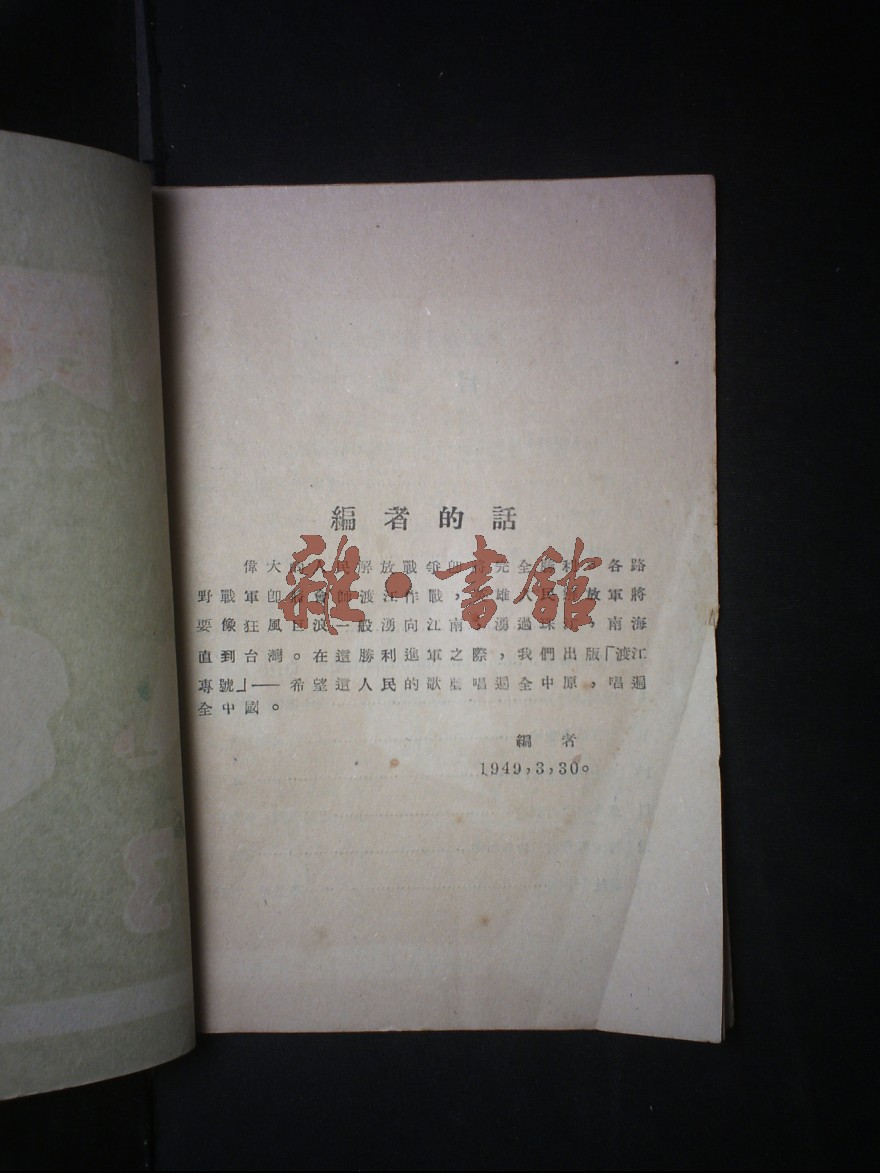 編者的話
偉大的人民解放戰爭即將完全勝利，各路
野戰軍即將會師渡江作戰，英雄人民解放軍將
要像狂風巨浪一般湧向江南，湧過珠江，南海
直到台灣。在這勝利進軍之際，我們出版「渡江
專號」——希望這人民的歌聲唱遍全中原，唱遍
全中國。
編者
1949,3,30。
雜·書館